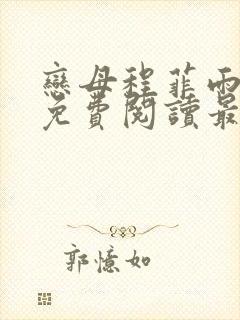 戀母程菲雨
免費閱讀最
郭憶如